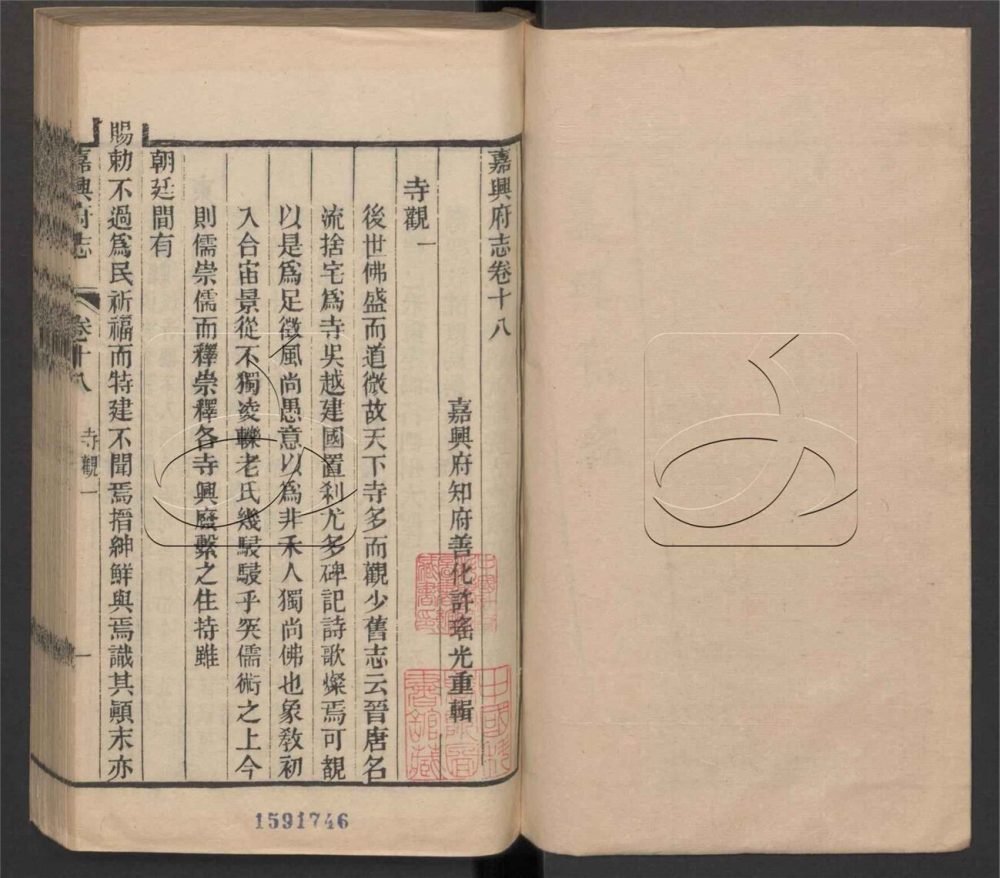 嘉興府志卷十八
嘉興府知府善化許瑤光重輯
寺觀一
後世佛盛而道微故天下寺多而觀少舊志云晉唐名
流捨宅爲寺吳越建國置刹尤多碑記詩歌燦焉可覩
以是爲足徵風尚愚意以爲非禾人獨尚佛也象敎初
入合宙景從不獨凌轢老氏幾駸駸乎突儒術之上今
則儒崇儒而釋崇釋各寺興廢繫之住持雖
朝廷間有
賜勅不過爲民祈福而特建不聞焉搢紳鮮與焉識其顚末亦
嘉興府志 卷十八 寺觀一 一
中國科
書館藏
1591746